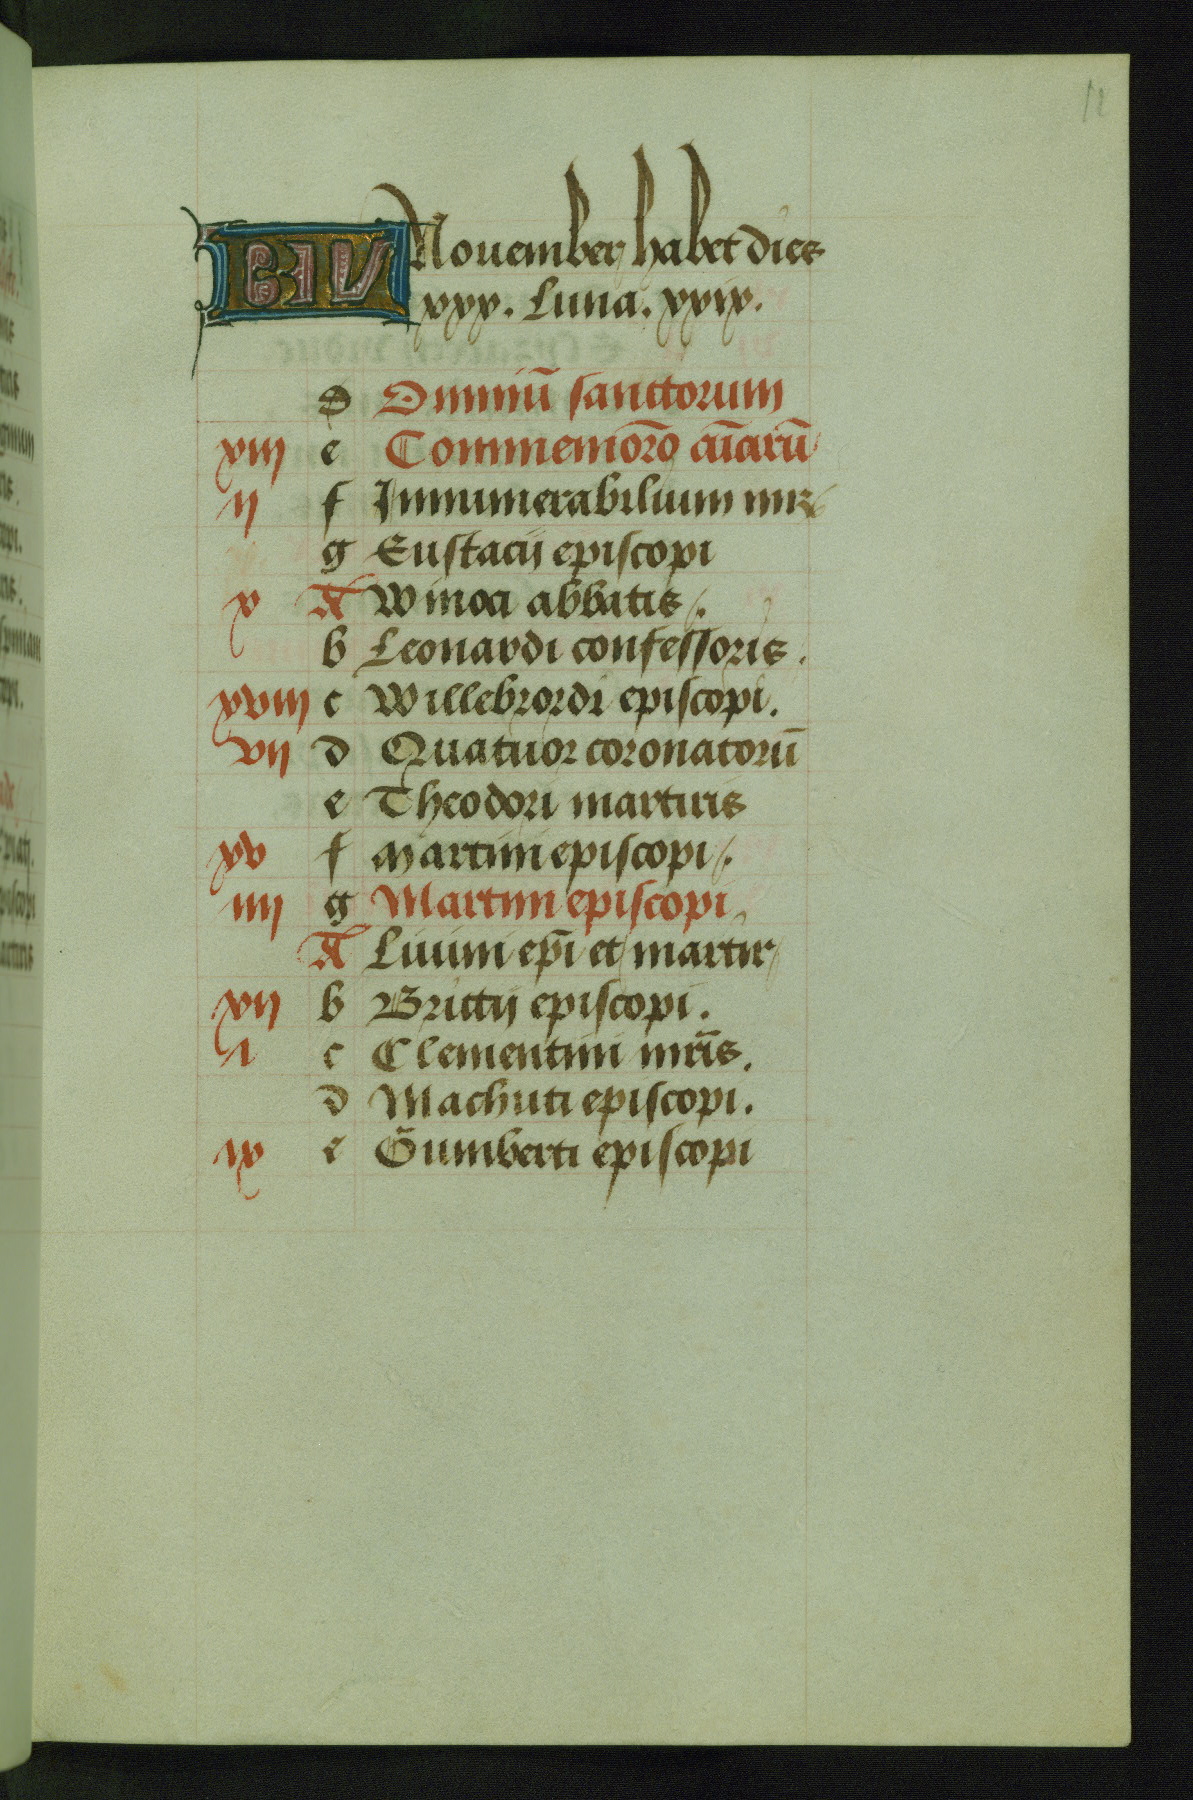 12
KL Nouember habet dies
xxx. Luna. xxix.
D Omniū sanctorum
xiii e Commemorō aīarū
ij f Innumerabilium mr
g Eustacij episcopi
x A Winoci abbatis.
b Leonardi confessoris.
xviij c Willebrordi episcopi.
vij d Quatuor coronatorū
e Theodori martiris
xv f Martini episcopi.
iiij g Martini episcopi
A Liuini ep̄i et martir
xij b Brictij episcopi.
i c Clementini mr̄is.
d Machuti episcopi.
ix e Gumberti episcopi